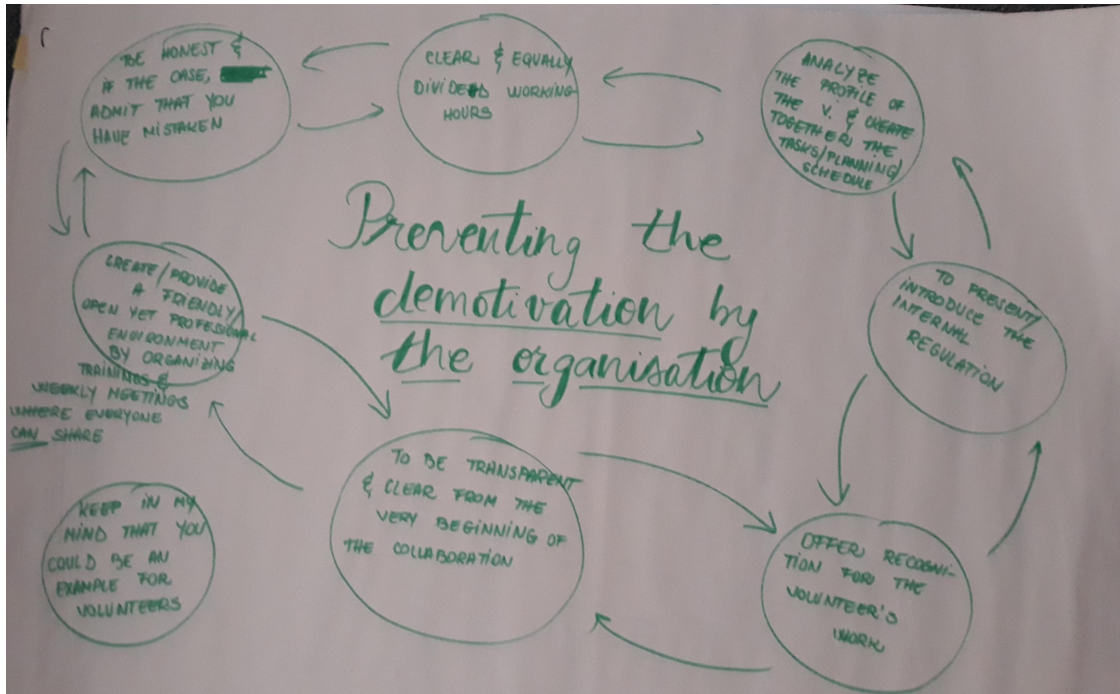 BE HONEST &
IF THE CASE,
ADMIT THAT YOU
HAVE MISTAKEN
CLEAR & EQUALLY
DIVIDED WORKING
HOURS
ANALYZE
THE PROFILE OF
THE V. & CREATE
TOGETHER THE
TASKS/PLANNING/
SCHEDULE
Preventing the
demotivation by
the organisation
CREATE/PROVIDE
A FRIENDLY/
OPEN YET PROFESSIONAL
ENVIRONMENT
BY ORGANIZING
TRAININGS &
WEEKLY MEETINGS
WHERE EVERYONE
CAN SHARE
TO PRESENT/
INTRODUCE THE
INTERNAL
REGULATION
TO BE TRANSPARENT
& CLEAR FROM THE
VERY BEGINNING OF
THE COLLABORATION
OFFER RECOGNI-
TION FOR THE
VOLUNTEER'S
WORK
KEEP IN MY
MIND THAT YOU
COULD BE AN
EXAMPLE FOR
VOLUNTEERS